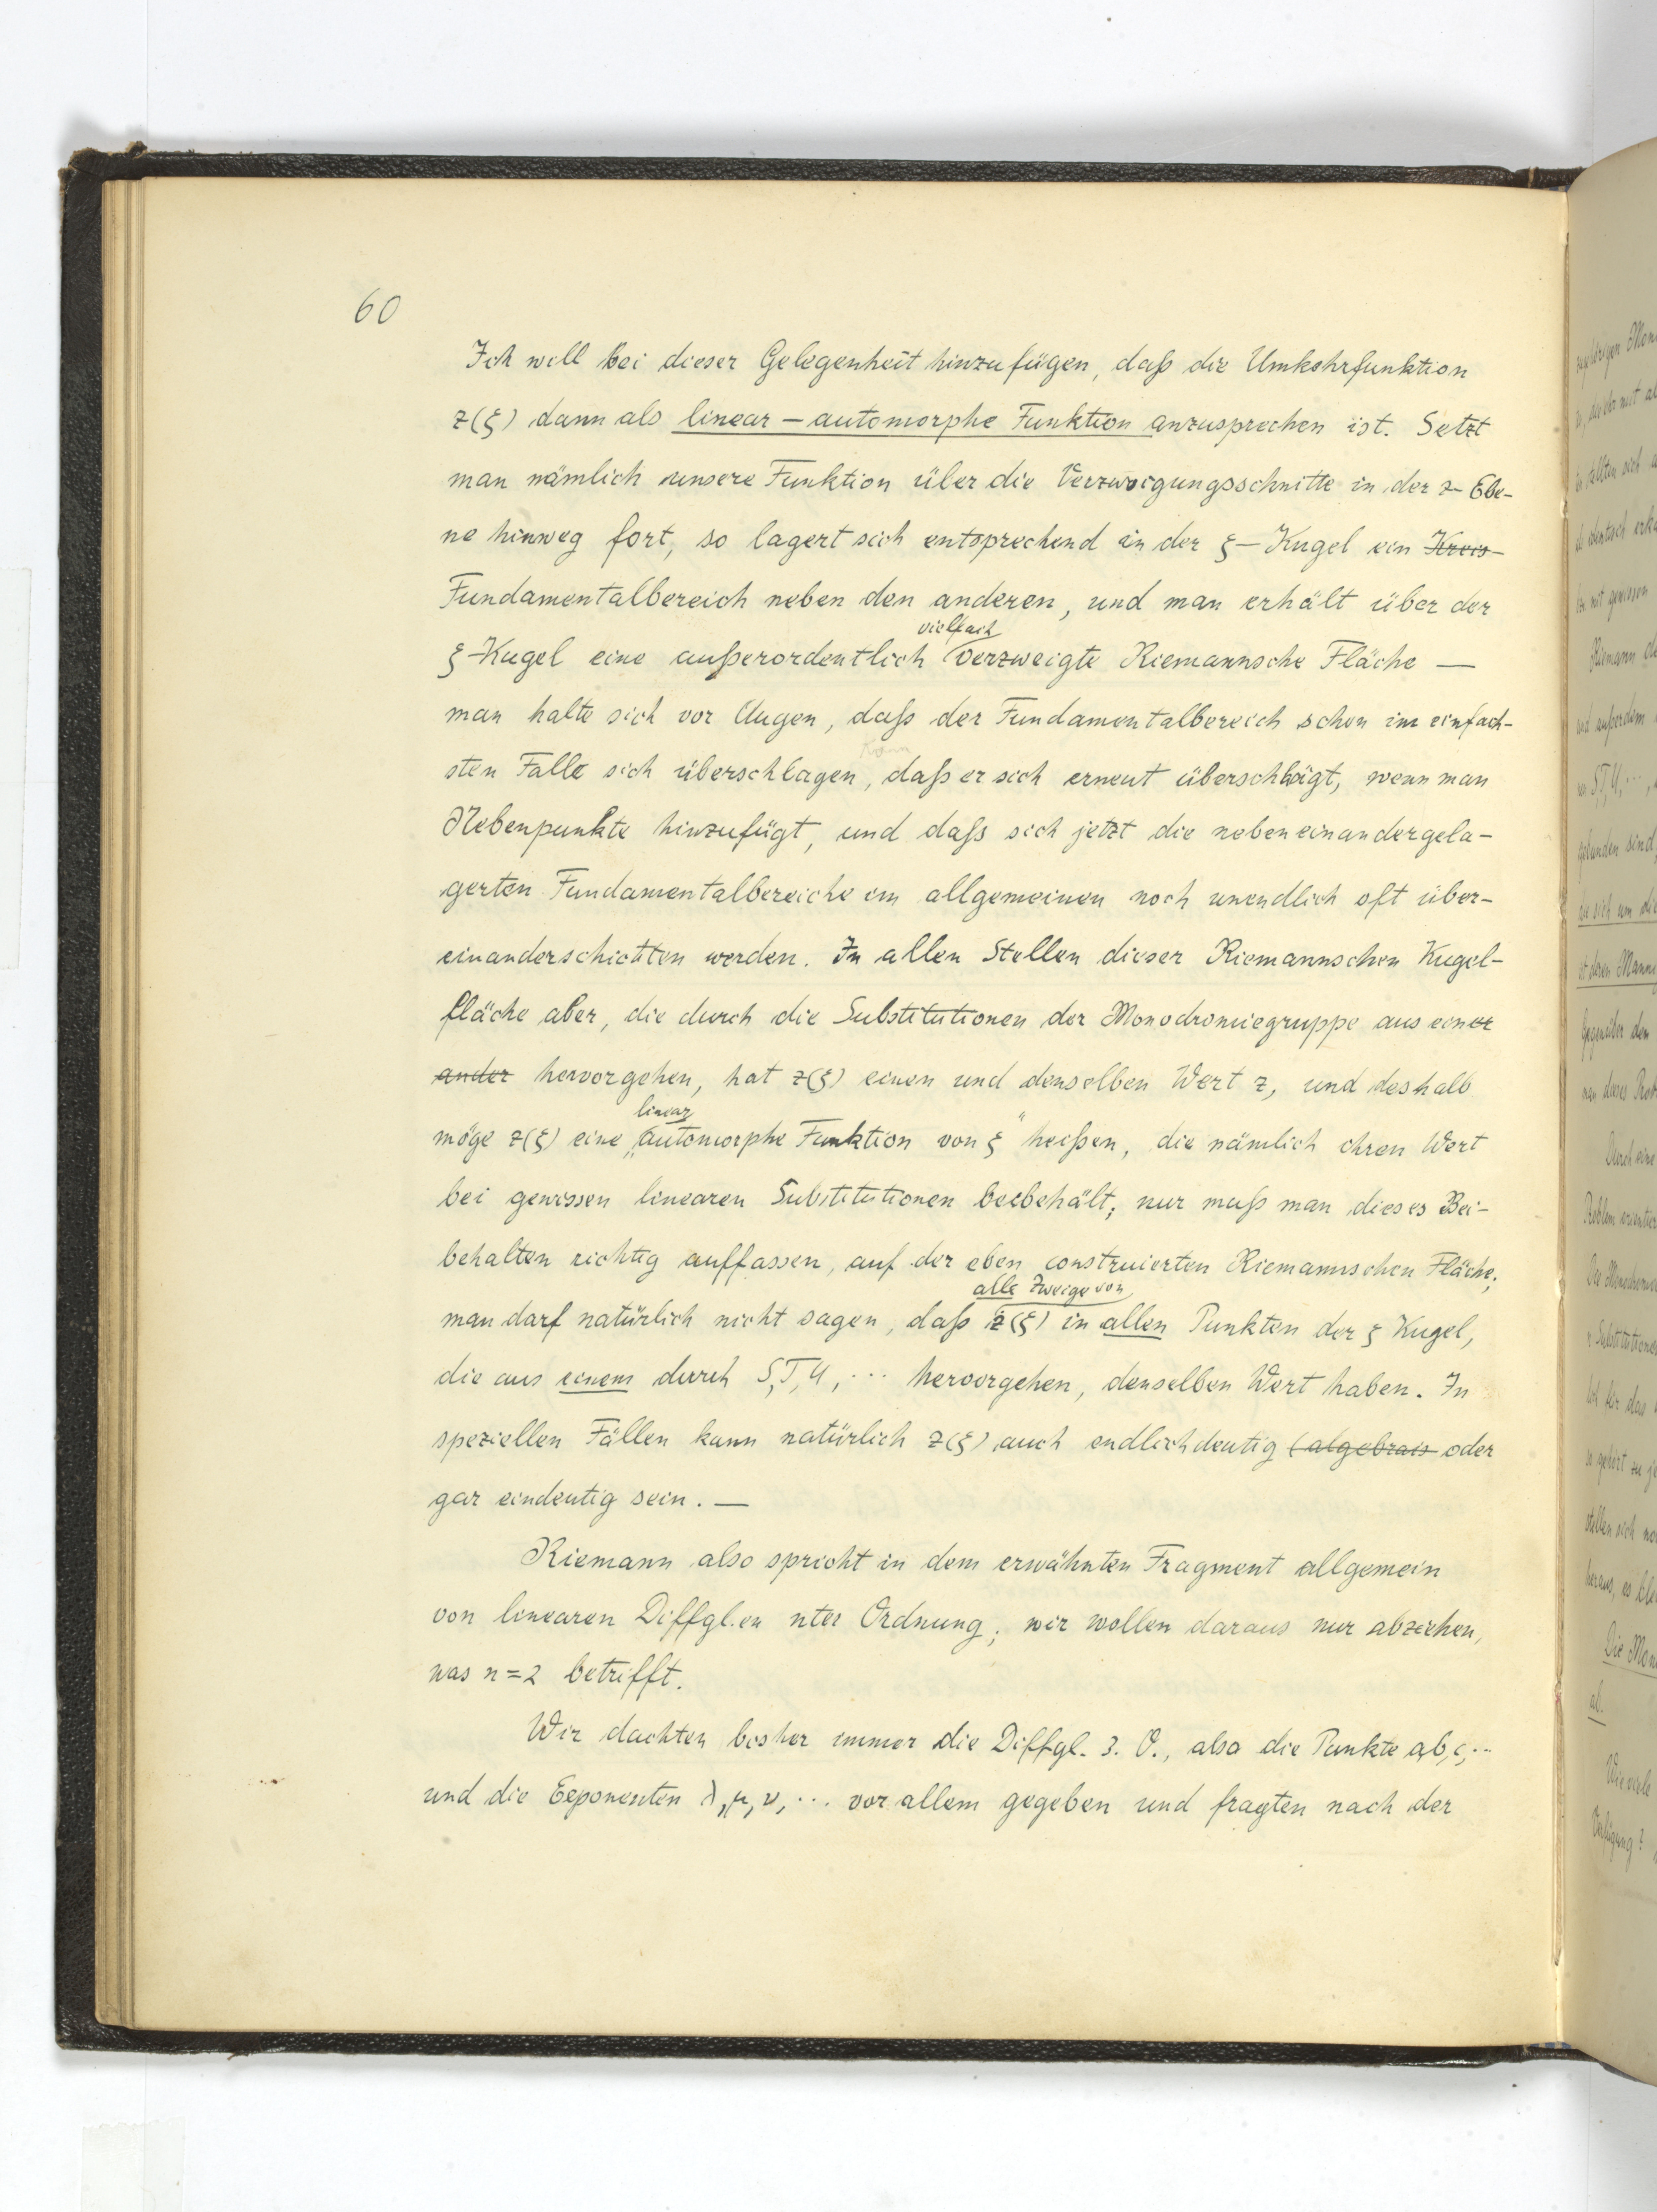 60
Ich will bei dieser Gelegenheit hinzufügen, daß die Umkehrfunktion
z(ξ) dann als linear – automorphe Funktion anzusprechen ist. Setzt
man nämlich unsere Funktion über die Verzweigungsschnitte in der z- Ebe-
ne hinweg fort, so lagert sich entsprechend in der ξ – Kugel ein Kreis-
Fundamentalbereich neben den anderen, und man erhält über der
vielfach
ξ-Kugel eine außerordentlich verzweigte Riemannsche Fläche —
man halte sich vor Augen, daß der Fundamentalbereich schon im einfach-
kann
sten Falle sich überschlagen, daß er sich erneut überschlägt, wenn man
Nebenpunkte hinzufügt, und daß sich jetzt die nebeneinandergela-
gerten Fundamentalbereiche im allgemeinen noch unendlich oft über-
einanderschichten werden. In allen Stellen dieser Riemannschen Kugel-
fläche aber, die durch die Substitutionen der Monodromiegruppe aus einer
ander hervorgehen, hat z(ξ) einen und denselben Wert z, und deshalb
linear
möge z(ξ) eine „automorphe Funktion von ξ" heißen, die nämlich ihren Wert
bei gewissen linearen Substitutionen beibehält; nur muß man dieses Bei-
behalten richtig auffassen, auf der eben construierten Riemannschen Fläche;
alle Zweige von
man darf natürlich nicht sagen, daß z(ξ) in allen Punkten der ξ Kugel,
die aus einem durch S, T, U, ... hervorgehen, denselben Wert haben. In
speziellen Fällen kann natürlich z(ξ) auch endlichdeutig (algebrais oder
gar eindeutig sein. —
Riemann also spricht in dem erwähnten Fragment allgemein
von linearen Diffgl.en nter Ordnung; wir wollen daraus nur abziehen,
was n=2 betrifft.
Wir dachten bisher immer die Diffgl. 3. O., also die Punkte a,b,c,...
und die Exponenten λ, μ, ν, ... vor allem gegeben und fragten nach der